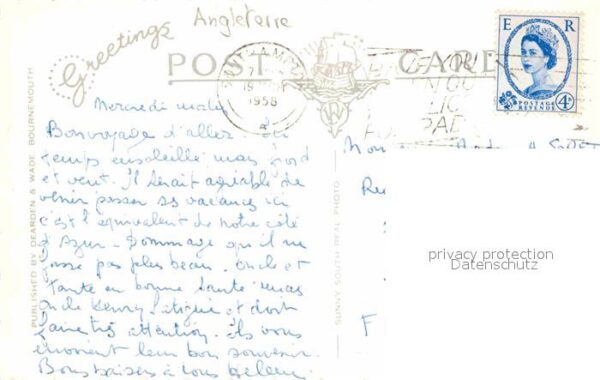 Angleterre
Greetings
POST CARD
SOUTHAMPTON
1958
E R
POSTAGE
REVENUE
4D
Mercredi matin
Bon voyage d'aller.
temps ensoleillé mais froid
et vent. Il serait agréable de
venir passer ses vacances ici
c'est l'équivalent de notre côte
d'Azur. Dommage qu'il ne
fasse pas plus beau. Oncle et
Tante en bonne santé mais
Oncle Henry fatigué et doit
faire très attention. Ils vous
envoient leur bon souvenir.
Bons baisers à tous
PUBLISHED BY DEARDEN & WADE, BOURNEMOUTH
SUNNY SOUTH REAL PHOTO
F
privacy protection
Datenschutz